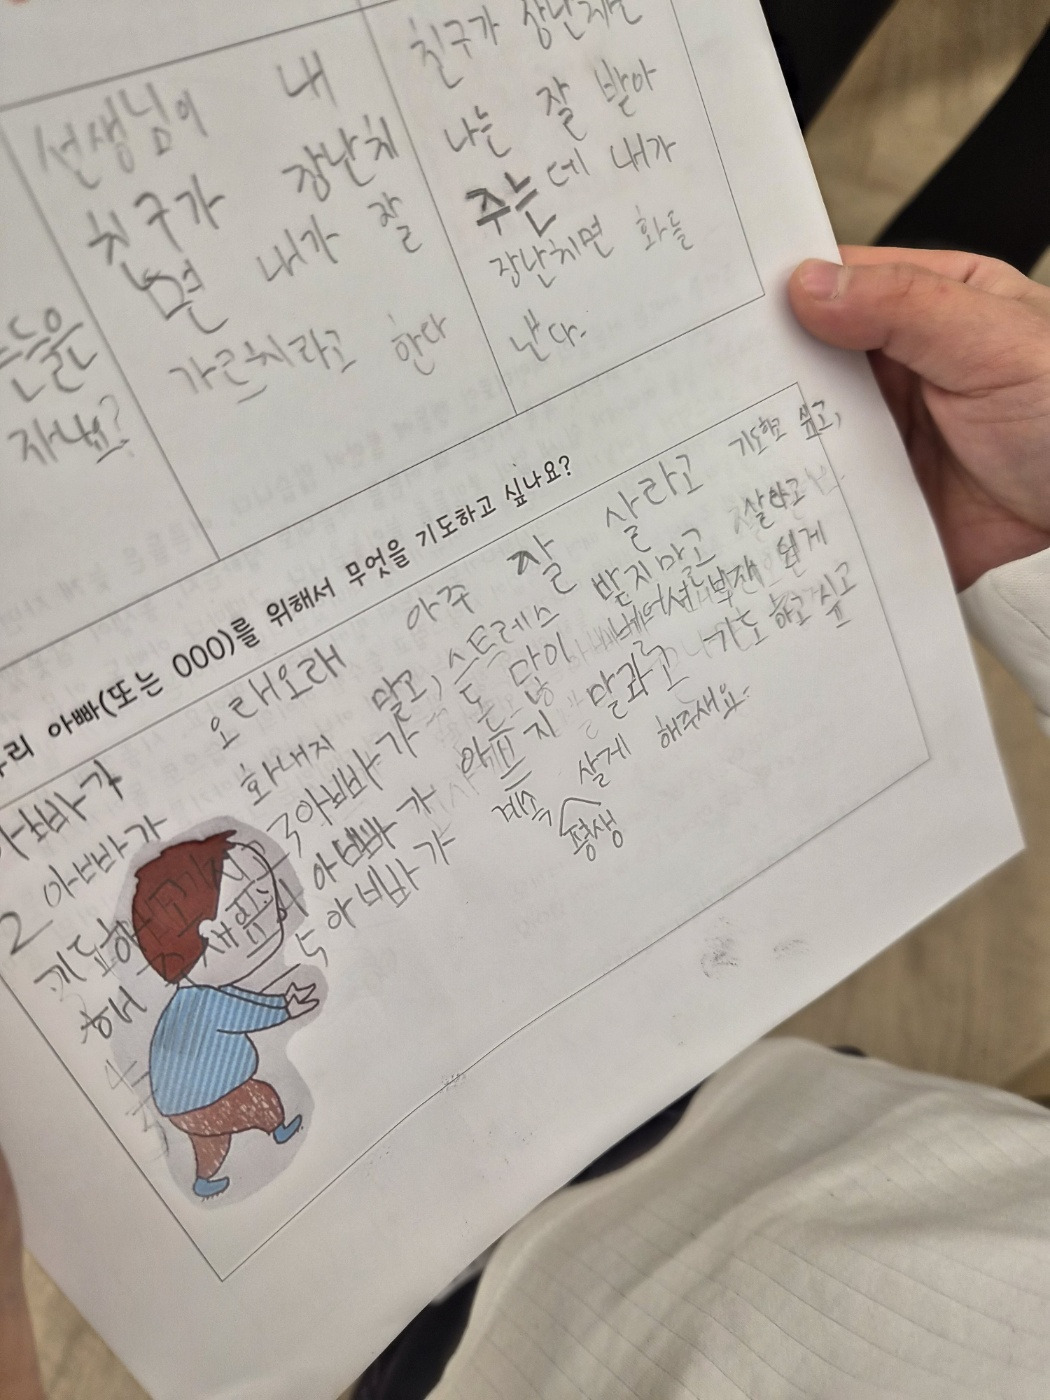 선생님이 내
친구가 장난치
면 내가 잘
가르치라고 한다
친구가 장난치면
나는 잘 받아
주는데 내가
장난치면 화를
낸다.
자나요?
우리 아빠(또는 OOO)를 위해서 무엇을 기도하고 싶나요?
아빠가 오래오래 아주 잘 살라고 기도하고 싶고,
2 아빠가 화내지 말고, 스트레스 받지 말고 잘 살라고
기도하고 싶고
3 아빠가 돈 많이 벌어서 부자 되게
해
4 아빠가 아프지 말라고 기도하고 싶고
5 아빠가 계속 평생 살게 해주새요.